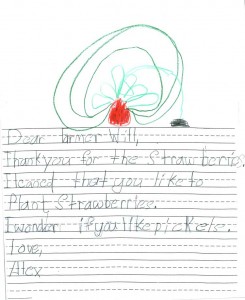 Dear farmer Will,
Thankyou for the strawberies.
I learned that you like to
Plant Strawberries.
I wonder if you like pickels.
Love,
Alex